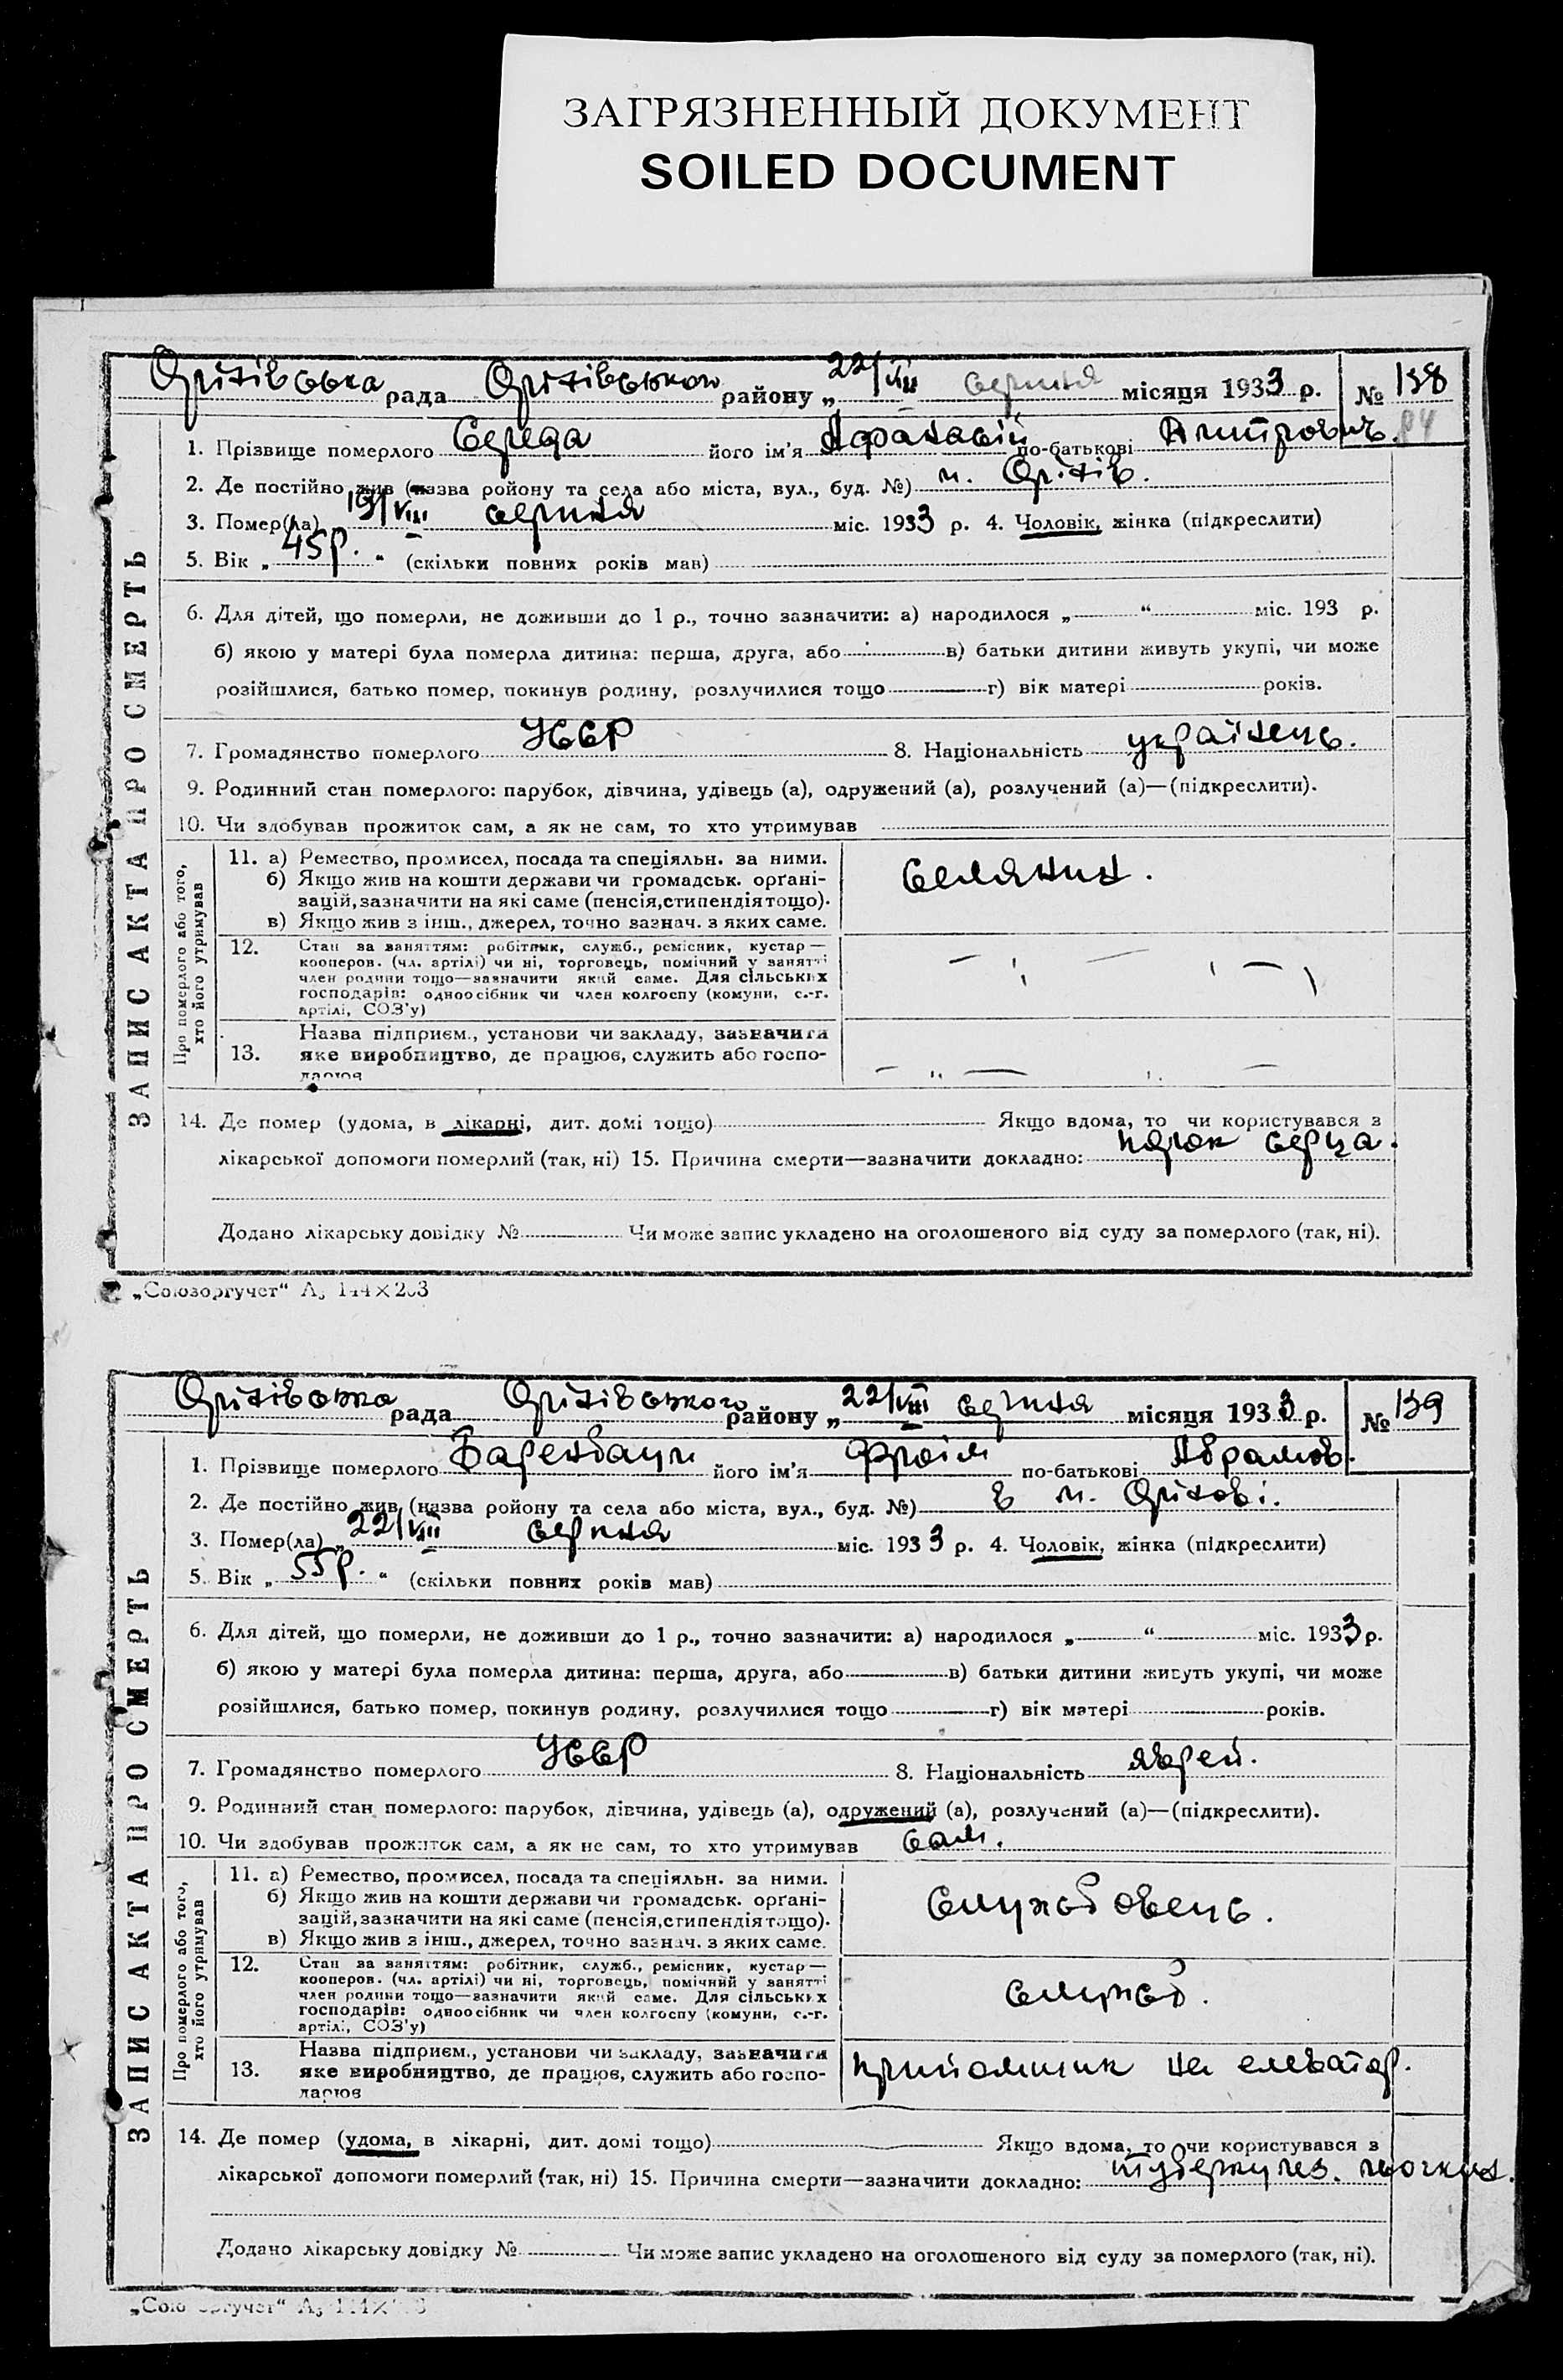 ЗАГРЯЗНЕННЫЙ ДОКУМЕНТ
SOILED DOCUMENT
Оратівська рада Оратівського району „22/VIII серпня місяця 1933 р. № 138
84
1. Прізвище померлого Середа його ім'я Афанасій по-батькові Дмитрович
2. Де постійно жив (назва ройону та села або міста, вул., буд. №) м. Оратів.
3. Помер(ла) 19/VIII серпня міс. 1933 р. 4. Чоловік, жінка (підкреслити)
5. Вік „ 45 р. “ (скільки повних років мав)
6. Для дітей, що померли, не доживши до 1 р., точно зазначити: а) народилося „ “ міс. 193 р.
б) якою у матері була померла дитина: перша, друга, або в) батьки дитини живуть укупі, чи може
розійшлися, батько помер, покинув родину, розлучилися тощо г) вік матері років.
7. Громадянство померлого УССР 8. Національність українець.
9. Родинний стан померлого: парубок, дівчина, удівець (а), одружений (а), розлучений (а)—(підкреслити).
10. Чи здобував прожиток сам, а як не сам, то хто утримував
ЗАПИС АКТА ПРО СМЕРТЬ
Про померлого або того, хто його утримував
11. а) Ремество, промисел, посада та спеціяльн. за ними.
б) Якщо жив на кошти держави чи громадськ. орґані-
зацій, зазначити на які саме (пенсія, стипендія тощо).
в) Якщо жив з інш., джерел, точно зазнач. з яких саме.
селянин.
12. Стан за заняттям: робітник, служб., ремісник, кустар—
кооперов. (чл. артілі) чи ні, торговець, помічний у занятті
член родини тощо—зазначити який саме. Для сільських
господарів: одноосібник чи член колгоспу (комуни, с.-г.
артілі, СОЗ'у)
13. Назва підприєм., установи чи закладу, зазначити
яке виробництво, де працює, служить або госпо-
дарює
14. Де помер (удома, в лікарні, дит. домі тощо) Якщо вдома, то чи користувався з
лікарської допомоги померлий (так, ні) 15. Причина смерти—зазначити докладно: порок серца.
Додано лікарську довідку № Чи може запис укладено на оголошеного від суду за померлого (так, ні).
„Союзоргучет“ А₅ 144×203
Оратівська рада Оратівського району „22/VIII серпня місяця 1933 р. № 139
1. Прізвище померлого Баренбаум його ім'я Фроім по-батькові Абрамов.
2. Де постійно жив (назва ройону та села або міста, вул., буд. №) в м. Оратові.
3. Помер(ла) „ 22/VIII серпня міс. 1933 р. 4. Чоловік, жінка (підкреслити)
5. Вік „ 55 р. “ (скільки повних років мав)
6. Для дітей, що померли, не доживши до 1 р., точно зазначити: а) народилося „ “ міс. 1933 р.
б) якою у матері була померла дитина: перша, друга, або в) батьки дитини живуть укупі, чи може
розійшлися, батько помер, покинув родину, розлучилися тощо г) вік матері років.
7. Громадянство померлого УССР 8. Національність яврей.
9. Родинний стан померлого: парубок, дівчина, удівець (а), одружений (а), розлучений (а)—(підкреслити).
10. Чи здобував прожиток сам, а як не сам, то хто утримував сам.
ЗАПИС АКТА ПРО СМЕРТЬ
Про померлого або того, хто його утримував
11. а) Ремество, промисел, посада та спеціяльн. за ними.
б) Якщо жив на кошти держави чи громадськ. орґані-
зацій, зазначити на які саме (пенсія, стипендія тощо).
в) Якщо жив з інш., джерел, точно зазнач. з яких саме.
службовець.
12. Стан за заняттям: робітник, служб., ремісник, кустар—
кооперов. (чл. артілі) чи ні, торговець, помічний у занятті
член родини тощо—зазначити який саме. Для сільських
господарів: одноосібник чи член колгоспу (комуни, с.-г.
артілі, СОЗ'у)
служб.
13. Назва підприєм., установи чи закладу, зазначити
яке виробництво, де працює, служить або госпо-
дарює
прийомщик на елеватор.
14. Де помер (удома, в лікарні, дит. домі тощо) Якщо вдома, то чи користувався з
лікарської допомоги померлий (так, ні) 15. Причина смерти—зазначити докладно: туберкулез.
Додано лікарську довідку № Чи може запис укладено на оголошеного від суду за померлого (так, ні).